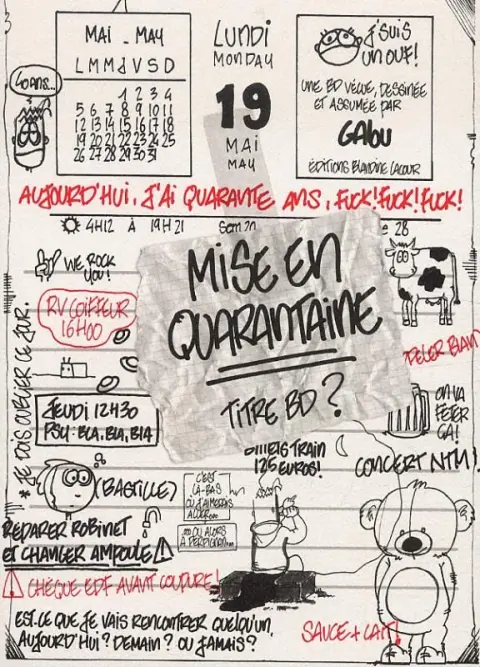 MAI - MAY
L M M J V S D
1 2 3 4
5 6 7 8 9 10 11
12 13 14 15 16 17 18
19 20 21 22 23 24 25
26 27 28 29 30 31
LUNDI
MONDAY
19
MAI
MAY
J'SUIS
UN OUF!
UNE BD VÉCUE, DESSINÉE
ET ASSUMÉE PAR
GABOU
ÉDITIONS BLANDINE LACOUR
40 ANS...
AUJOURD'HUI, J'AI QUARANTE ANS, FUCK! FUCK! FUCK!
4H12 À 19H21
28
WE ROCK
YOU!
MISE EN
QUARANTAINE
TITRE BD?
RV COIFFEUR
16H00
* JE DOIS OUBLIER CE JOUR.
JEUDI 12H30
PSY: BLA, BLA, BLA
ON VA
FÊTER
ÇA!
BILLETS TRAIN
125 EUROS!
CONCERT NTM!
(BASTILLE)
C'EST
LÀ-BAS
... OU ALORS
À PERPIGNAN...
RÉPARER ROBINET
ET CHANGER AMPOULE
CHÈQUE EDF AVANT COUPURE!
EST-CE QUE JE VAIS RENCONTRER QUELQU'UN,
AUJOURD'HUI? DEMAIN? OU JAMAIS?
SAUCE + LAIT!